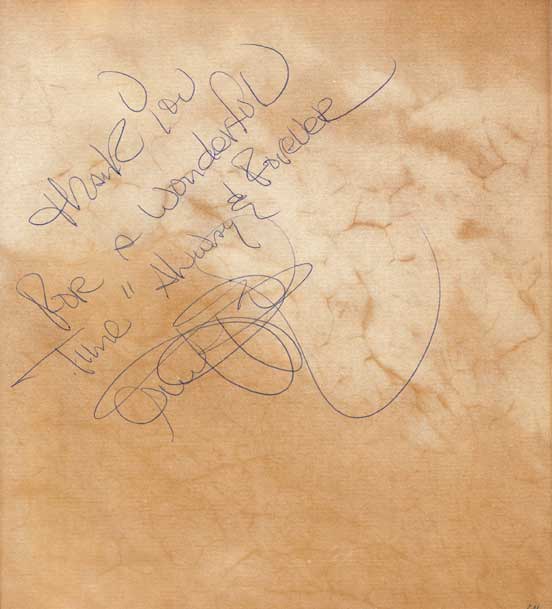 Thank You
For A Wonderful
Time " Always & Forever